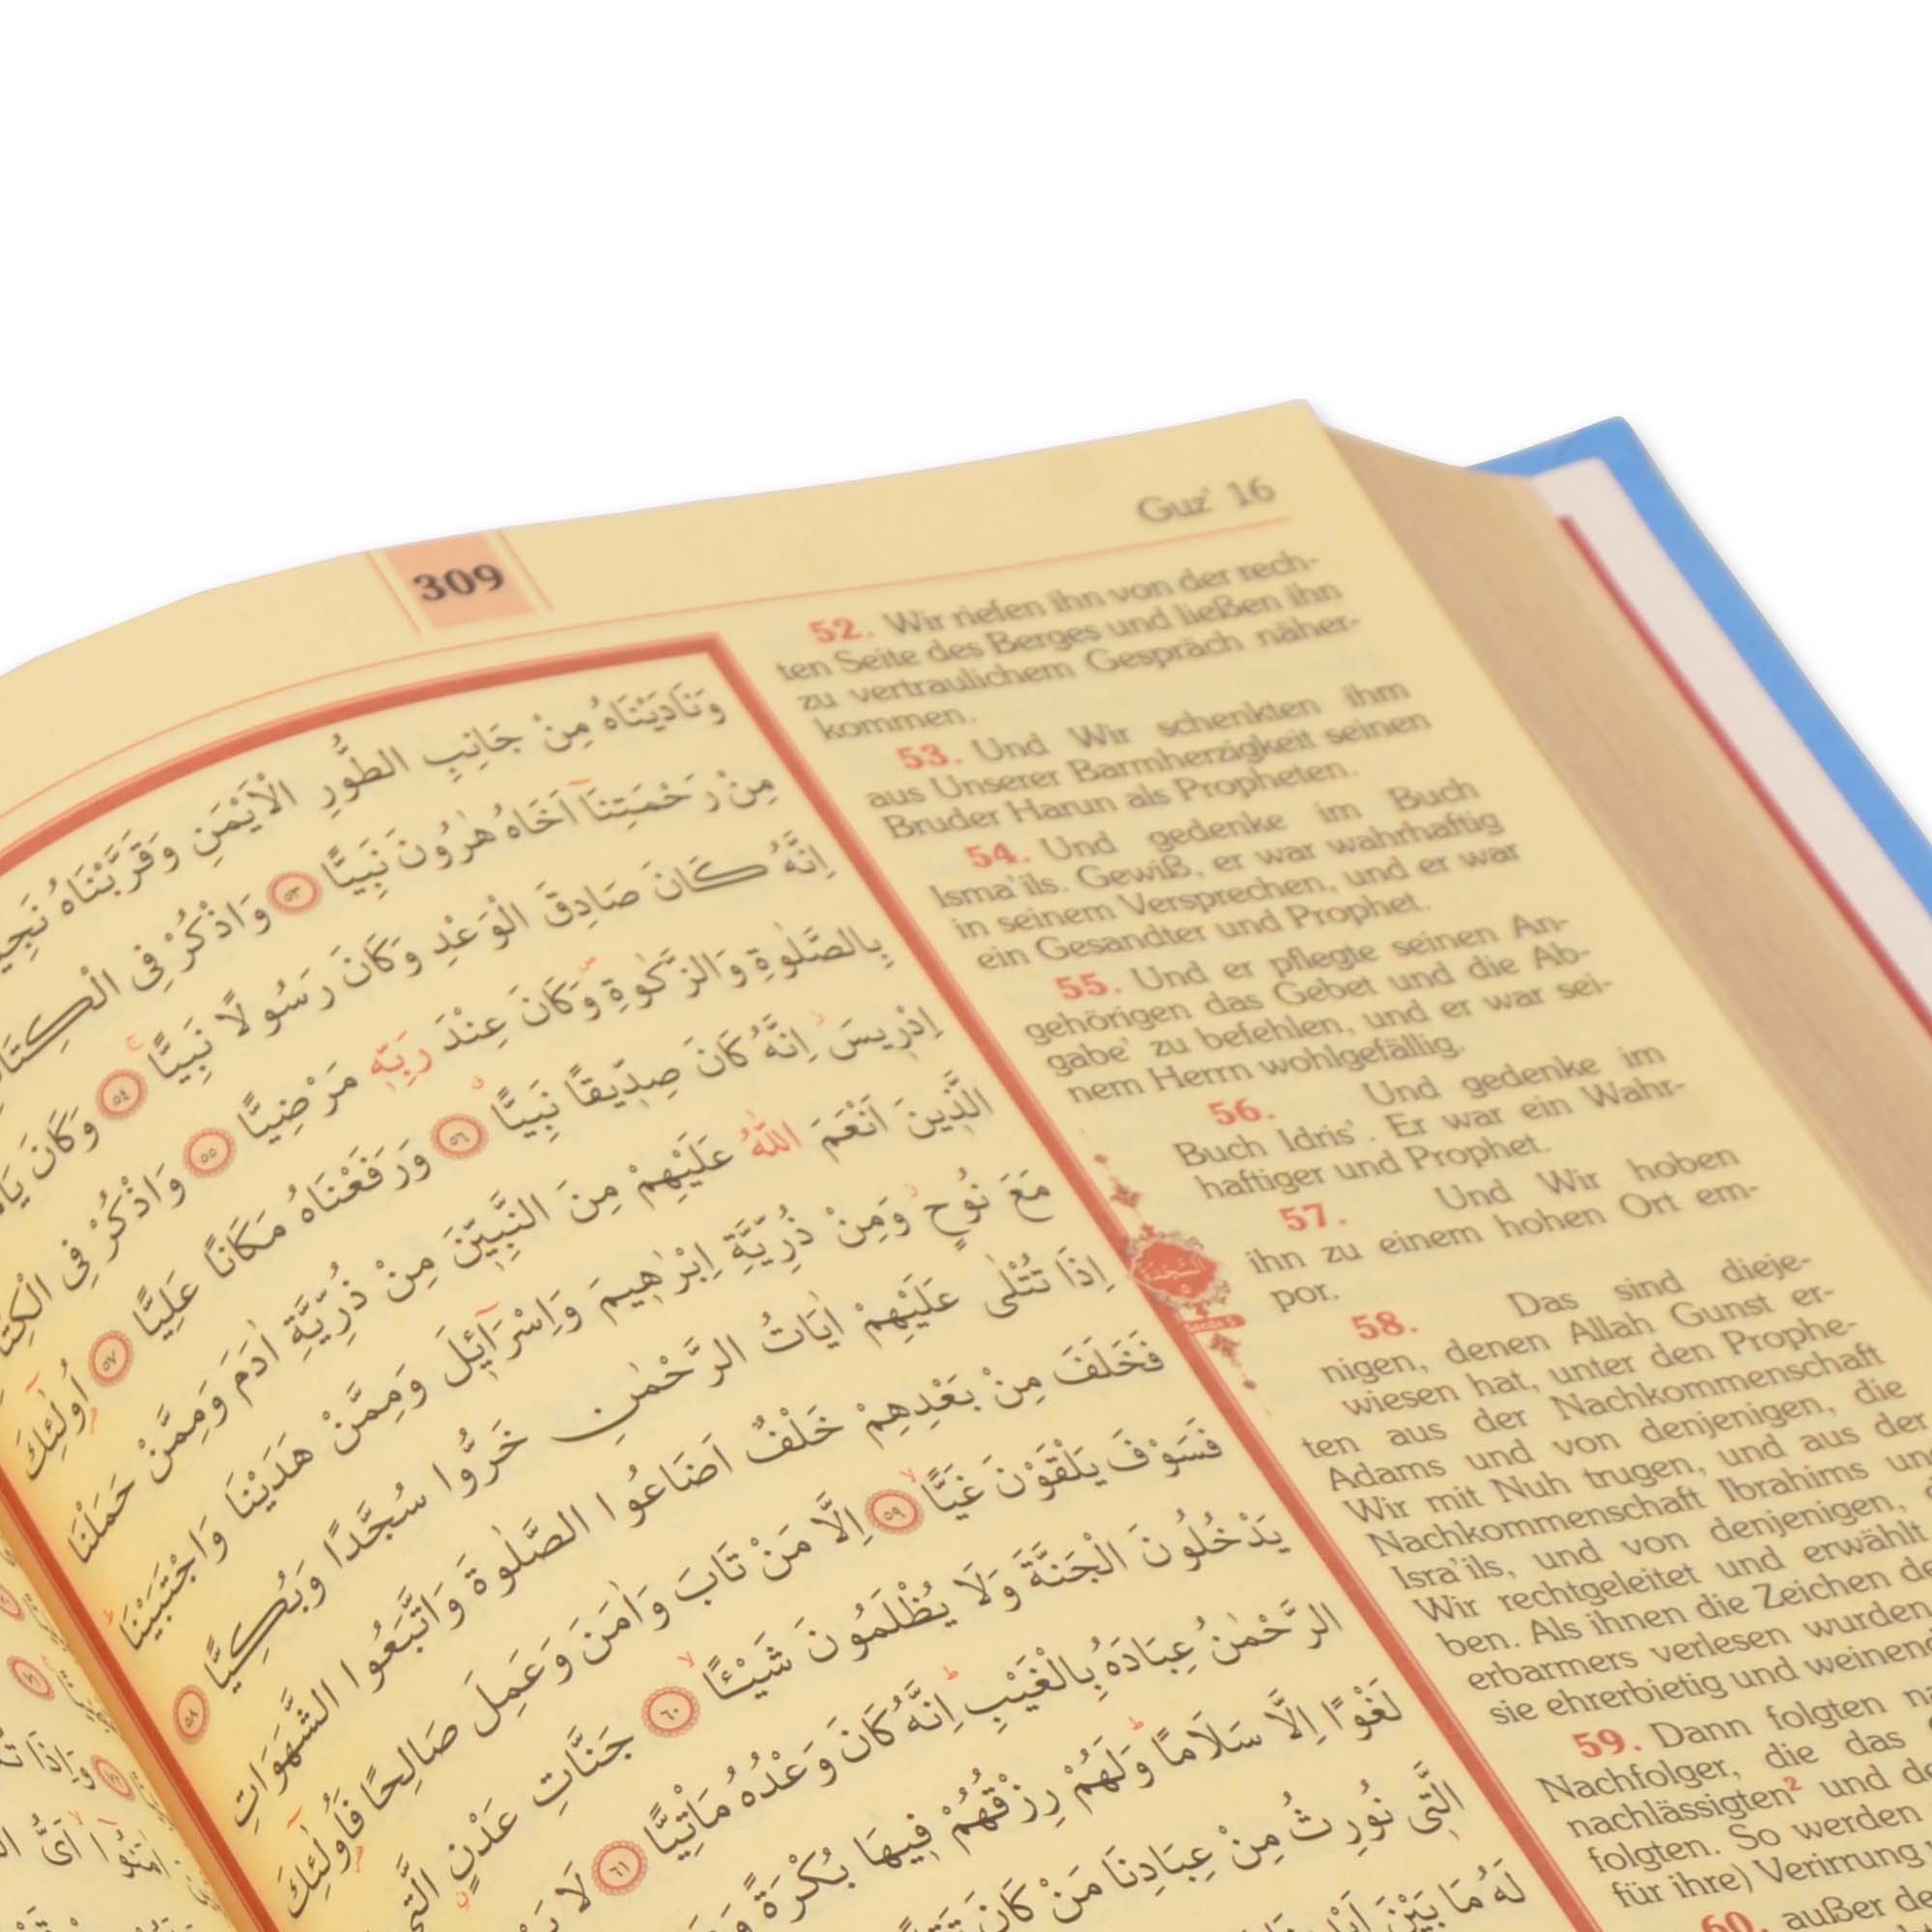 309
Ǧuz' 16
وَنَادَيْنَاهُ مِنْ جَانِبِ الطُّورِ الْاَيْمَنِ وَقَرَّبْنَاهُ
مِنْ رَحْمَتِنَٓا اَخَاهُ هٰرُونَ نَبِيًّا ﴿٥٣﴾ وَاذْكُرْ فِى
اِنَّهُ كَانَ صَادِقَ الْوَعْدِ وَكَانَ رَسُولًا نَبِيًّا ﴿٥٤﴾ وَكَانَ
بِالصَّلٰوةِ وَالزَّكٰوةِ وَكَانَ عِنْدَ رَبِّهٖ مَرْضِيًّا ﴿٥٥﴾ وَاذْكُرْ فِى
اِدْرٖيسَ اِنَّهُ كَانَ صِدّٖيقًا نَبِيًّا ﴿٥٦﴾ وَرَفَعْنَاهُ مَكَانًا عَلِيًّا ﴿٥٧﴾ اُو۬لٰٓئِكَ
الَّذٖينَ اَنْعَمَ اللّٰهُ عَلَيْهِمْ مِنَ النَّبِيّٖنَ مِنْ ذُرِّيَّةِ اٰدَمَ وَمِمَّنْ حَمَلْنَا
مَعَ نُوحٍ وَمِنْ ذُرِّيَّةِ اِبْرٰهٖيمَ وَاِسْرَٓائٖلَ وَمِمَّنْ هَدَيْنَا وَاجْتَبَيْنَا
اِذَا تُتْلٰى عَلَيْهِمْ اٰيَاتُ الرَّحْمٰنِ خَرُّوا سُجَّدًا وَبُكِيًّا ﴿٥٨﴾
فَخَلَفَ مِنْ بَعْدِهِمْ خَلْفٌ اَضَاعُوا الصَّلٰوةَ وَاتَّبَعُوا الشَّهَوَاتِ
فَسَوْفَ يَلْقَوْنَ غَيًّا ﴿٥٩﴾ اِلَّا مَنْ تَابَ وَاٰمَنَ وَعَمِلَ صَالِحًا فَاُو۬لٰٓئِكَ
يَدْخُلُونَ الْجَنَّةَ وَلَا يُظْلَمُونَ شَيْـًٔا ﴿٦٠﴾ جَنَّاتِ عَدْنٍ الَّتٖى
الرَّحْمٰنُ عِبَادَهُ بِالْغَيْبِ اِنَّهُ كَانَ وَعْدُهُ مَأْتِيًّا ﴿٦١﴾ لَا
لَغْوًا اِلَّا سَلَامًا وَلَهُمْ رِزْقُهُمْ فٖيهَا بُكْرَةً
الَّتٖى نُورِثُ مِنْ عِبَادِنَا مَنْ كَانَ
لَهُ مَا بَيْنَ
52. Wir riefen ihn von der rech-
ten Seite des Berges und ließen ihn
zu vertraulichem Gespräch näher-
kommen.
53. Und Wir schenkten ihm
aus Unserer Barmherzigkeit seinen
Bruder Harun als Propheten.
54. Und gedenke im Buch
Isma'ils. Gewiß, er war wahrhaftig
in seinem Versprechen, und er war
ein Gesandter und Prophet.
55. Und er pflegte seinen An-
gehörigen das Gebet und die Ab-
gabe' zu befehlen, und er war sei-
nem Herrn wohlgefällig.
56. Und gedenke im
Buch Idris'. Er war ein Wahr-
haftiger und Prophet.
57. Und Wir hoben
ihn zu einem hohen Ort em-
por.
58. Das sind dieje-
nigen, denen Allah Gunst er-
wiesen hat, unter den Prophe-
ten aus der Nachkommenschaft
Adams und von denjenigen, die
Wir mit Nuh trugen, und aus der
Nachkommenschaft Ibrahims
Isra'ils, und von denjenigen,
Wir rechtgeleitet und erwählt
ben. Als ihnen die Zeichen
erbarmers verlesen wurden
sie ehrerbietig und weinend
59. Dann folgten
Nachfolger, die das
nachlässigten² und
folgten. So werden
für ihre) Verirrung
60. außer